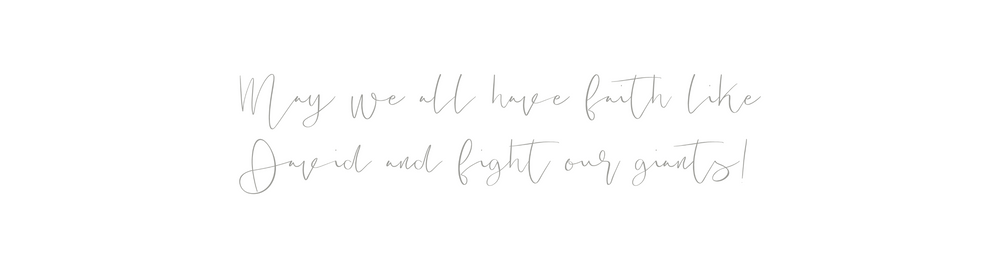 May we all have faith like
David and fight our giants!